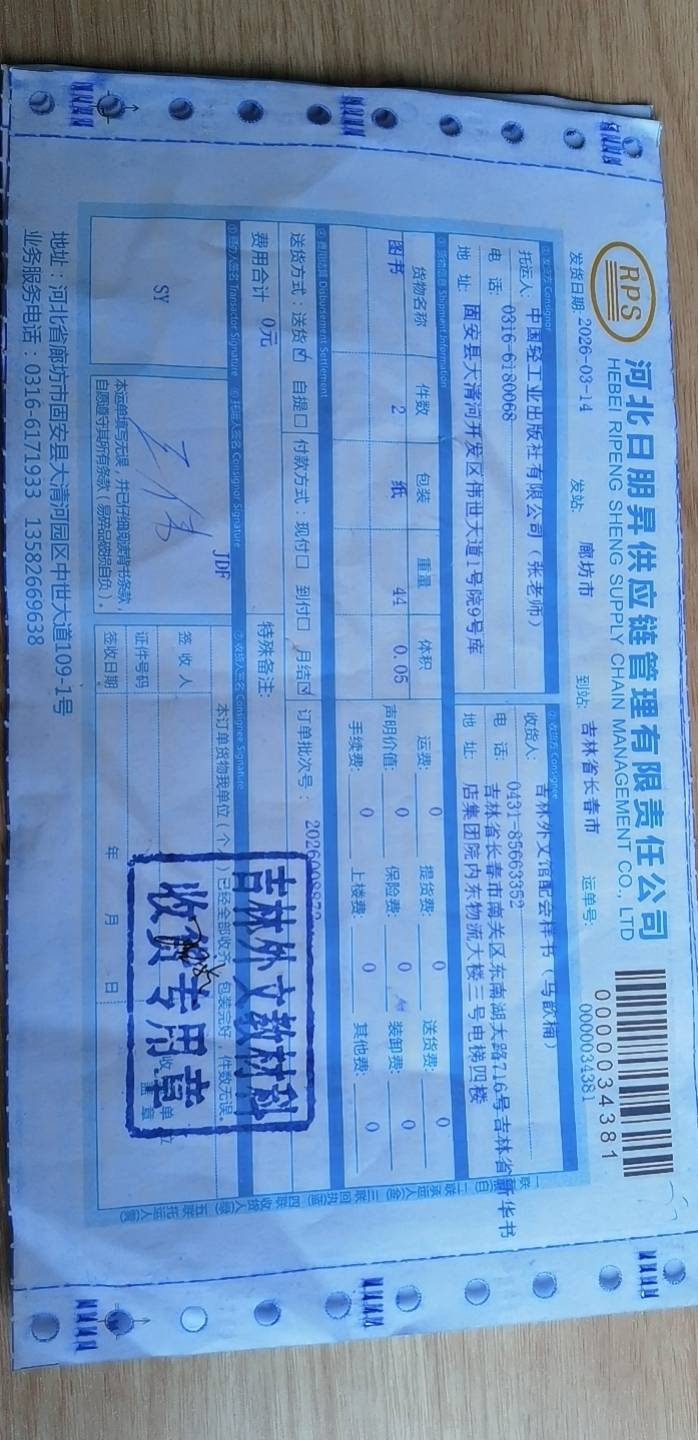 RPS
河北日朋昇供应链管理有限责任公司
HEBEI RIPENG SHENG SUPPLY CHAIN MANAGEMENT CO., LTD
0000034381
发货日期: 2026-03-14 发站: 廊坊市 到站: 吉林省长春市 运单号: 0000034381
①发货方 Consignor
托运人: 中国轻工业出版社有限公司（张老师）
电 话: 0316-6180068
地 址: 固安县大清河开发区伟世大道1号院9号库
②收货方 Consignee
收货人: 吉林外文馆配会样书（马歆楠）
电 话: 0431-85663352
地 址: 吉林省长春市南关区东南湖大路716号吉林省新华书
店集团院内东物流大楼三号电梯四楼
③货物信息 Shipment Information
货物名称 件数 包装 重量 体积
图书 2 纸 44 0.05
运费: 0 提货费: 0 送货费: 0
声明价值: 0 保险费: 0 装卸费: 0
手续费: 0 上楼费: 0 其他费: 0
④费用结算 Disbursement Settlement
送货方式: 送货☑ 自提☐ 付款方式: 现付☐ 到付☐ 月结☑ 订单批次号:
费用合计 0元
特殊备注:
⑤经办人签名 Transactor Signature
SY
⑥托运人签名 Consignor Signature
JDF
本运单填写无误，并已仔细阅读背书条款，
自愿遵守其所有条款（易碎品破损自负）。
⑦收货人签名 Consignee Signature
本订单货物我单位（个人）已经全部收齐，包装完好，件数无误。
签 收 人
证件号码
签收日期 年 月 日
吉林外文教材科
收货专用章
地址：河北省廊坊市固安县大清河园区中世大道109-1号
业务服务电话：0316-6171933 13582669638